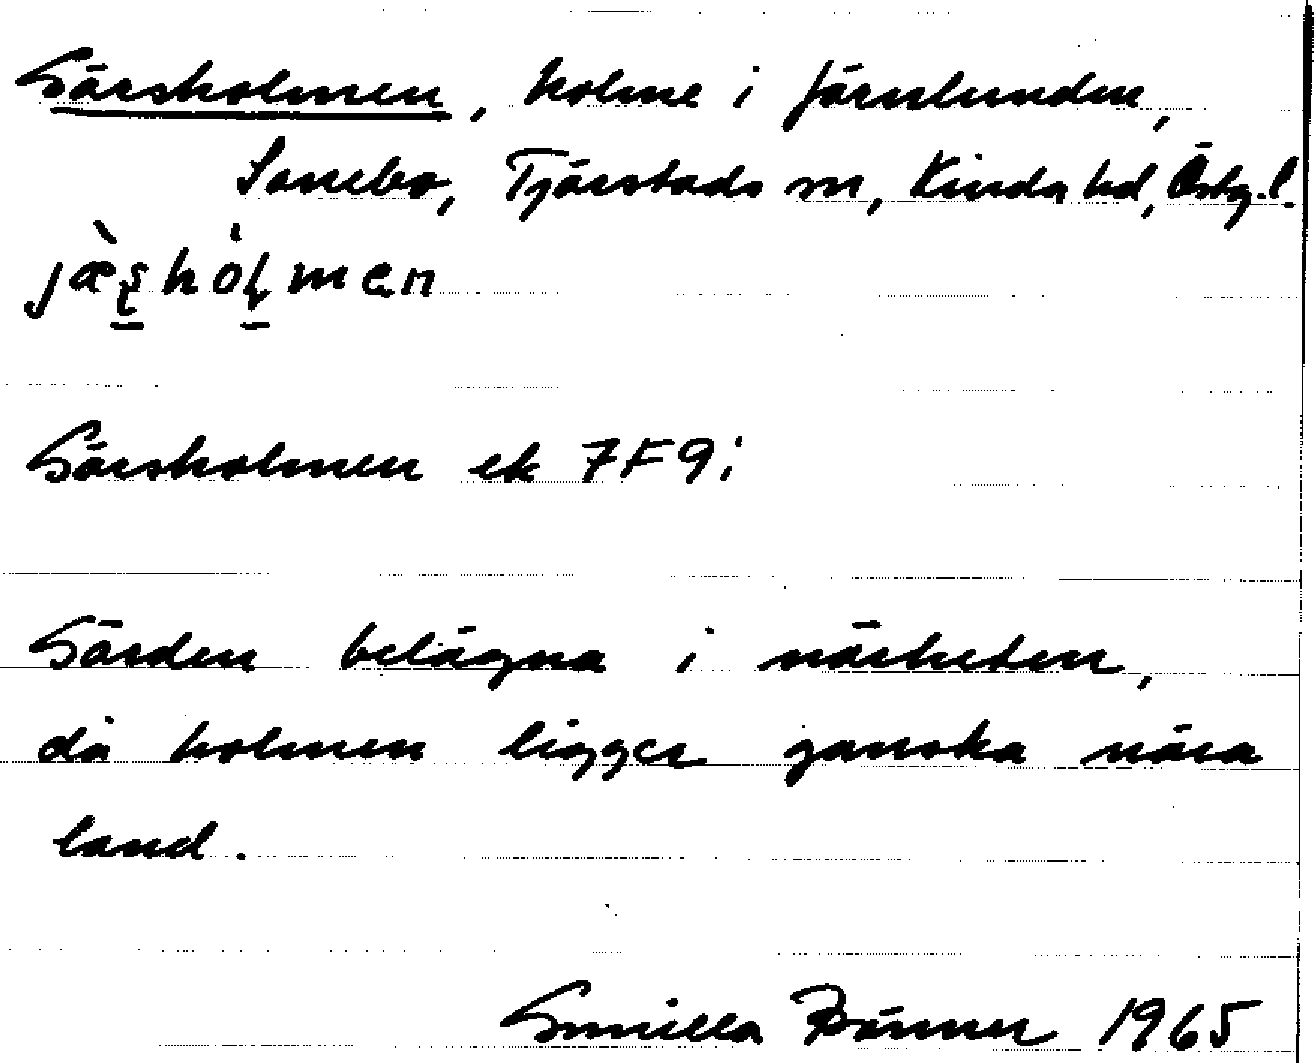 Gärsholmen, holme i Järnlunden,
Sonebo, Tjärstads sn, Kinda hd, Östg.l.
jæ̀ʂhòɭmen
Gärsholmen ek 7F9i
Gärden belägna i närheten,
då holmen ligger ganska nära
land.
Gunilla 1965